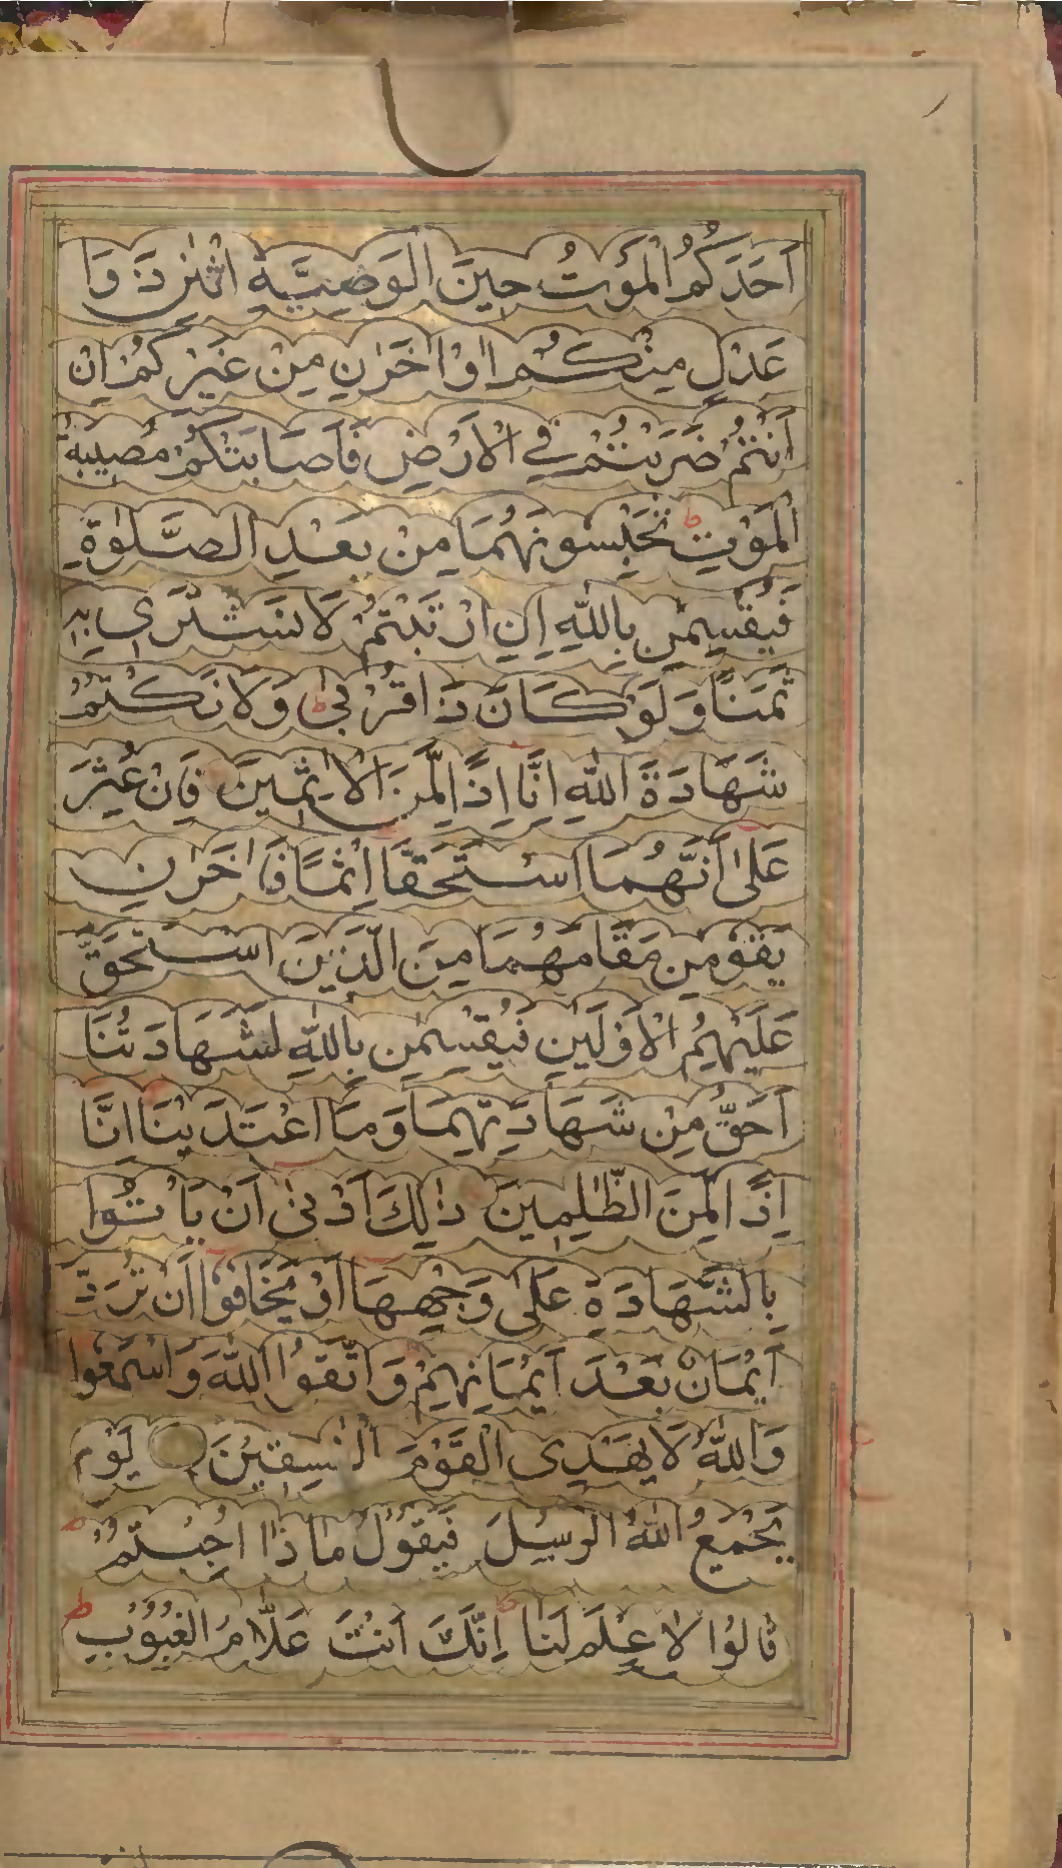 اَحَدَكُمُ الْمَوْتُ حِينَ الْوَصِيَّةِ اثْنٰنِ ذَوَا
عَدْلٍ مِنْكُمْ اَوْ اٰخَرٰنِ مِنْ غَيْرِكُمْ اِنْ
اَنْتُمْ ضَرَبْتُمْ فِي الْاَرْضِ فَاَصَابَتْكُمْ مُصِيبَةُ
الْمَوْتِ ط تَحْبِسُونَهُمَا مِنْ بَعْدِ الصَّلٰوةِ
فَيُقْسِمٰنِ بِاللّٰهِ اِنِ ارْتَبْتُمْ لَا نَشْتَرِي بِهِ
ثَمَنًا وَلَوْ كَانَ ذَا قُرْبٰى ط وَلَا نَكْتُمُ
شَهَادَةَ اللّٰهِ اِنَّا اِذًا لَّمِنَ الْاٰثِمِينَ فَاِنْ عُثِرَ
عَلٰى اَنَّهُمَا اسْتَحَقَّا اِثْمًا فَاٰخَرٰنِ
يَقُومٰنِ مَقَامَهُمَا مِنَ الَّذِينَ اسْتَحَقَّ
عَلَيْهِمُ الْاَوْلَيٰنِ فَيُقْسِمٰنِ بِاللّٰهِ لَشَهَادَتُنَا
اَحَقُّ مِنْ شَهَادَتِهِمَا وَمَا اعْتَدَيْنَا اِنَّا
اِذًا لَمِنَ الظّٰلِمِينَ ذٰلِكَ اَدْنٰى اَنْ يَاْتُوْا
بِالشَّهَادَةِ عَلٰى وَجْهِهَا اَوْ يَخَافُوْا اَنْ تُرَدَّ
اَيْمَانٌ بَعْدَ اَيْمَانِهِمْ وَاتَّقُوا اللّٰهَ وَاسْمَعُوا
وَاللّٰهُ لَا يَهْدِى الْقَوْمَ الْفٰسِقِيْنَ يَوْمَ
يَجْمَعُ اللّٰهُ الرُّسُلَ فَيَقُوْلُ مَاذَا اُجِبْتُمْ
قَالُوْا لَا عِلْمَ لَنَا ط اِنَّكَ اَنْتَ عَلَّامُ الْغُيُوْبِ ط